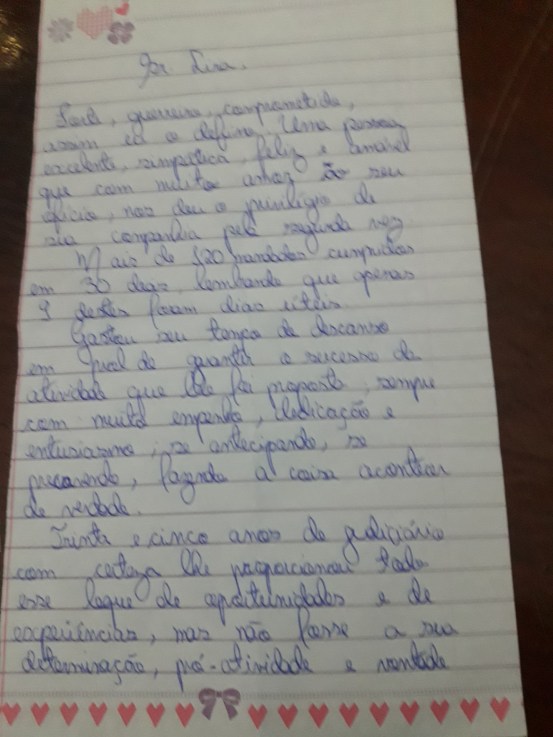 Forte, guerreira, comprometida,
assim eu a defino. Uma pessoa
excelente, simpática, feliz e amável
que com muito amor ao seu
ofício, nos deu o privilégio de
sua companhia pela segunda vez.
Mais de 520 mandados cumpridos
em 30 dias, lembrando que apenas
9 destes foram dias úteis.
Gastou seu tempo de descanso
em prol de garantir o sucesso da
atividade que lhe foi proposta, sempre
com muito empenho, dedicação e
entusiasmo, se antecipando, se
precavendo, fazendo a coisa acontecer
de verdade.
Trinta e cinco anos de judiciário
com certeza lhe proporcionou todo
esse leque de oportunidades e de
experiências, mas não fosse a sua
determinação, pró-atividade e vontade